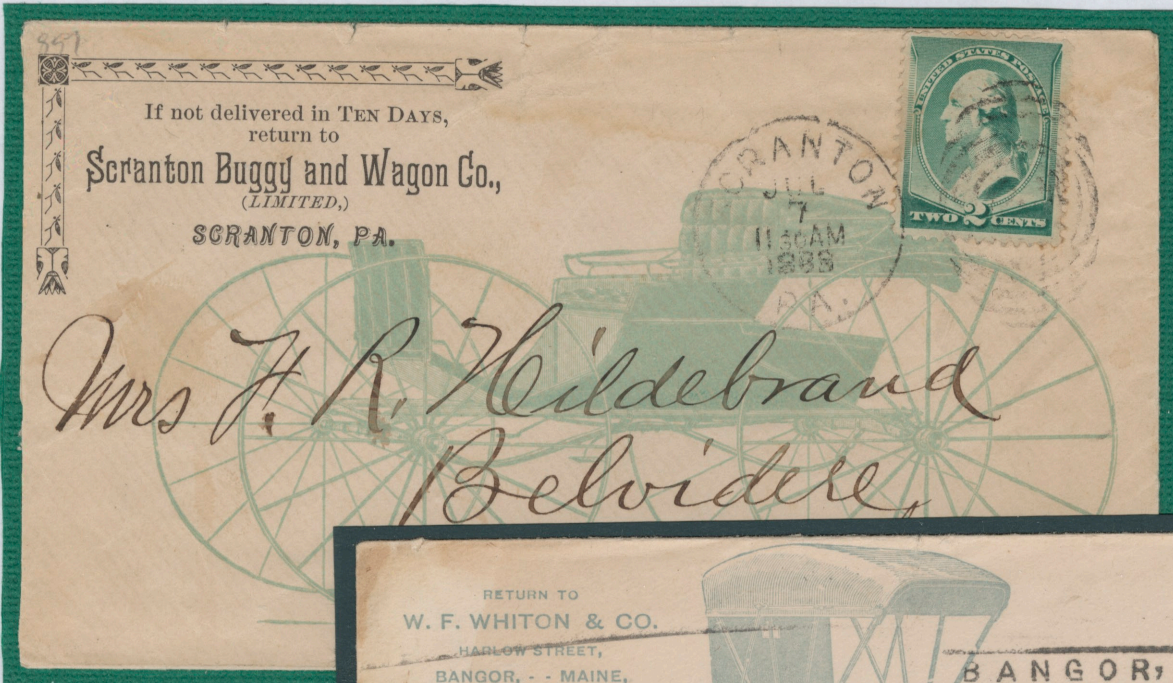 891
If not delivered in TEN DAYS,
return to
Scranton Buggy and Wagon Co.,
(LIMITED,)
SCRANTON, PA.
SCRANTON
JUL
7
11 30 AM
PA.
UNITED STATES POSTAGE
TWO 2 CENTS
Mrs F. R. Hildebrand
Belvidere,
RETURN TO
W. F. WHITON & CO.
HARLOW STREET,
BANGOR, - - MAINE,
BANGOR,